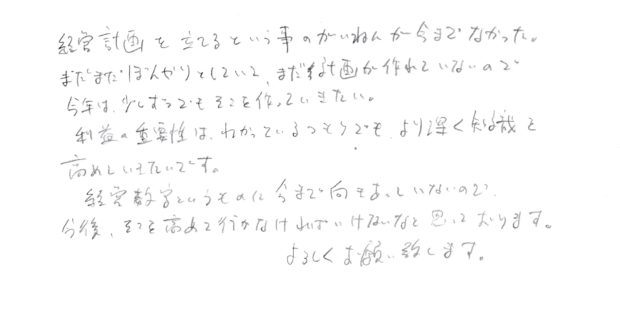 経営計画を立てるという事のがいねんが今までなかった。
まだまだぼんやりとしていて、まだ計画が作れていないので
今年は、少しずつでもそこを作っていきたい。
利益の重要性は、わかっているつもりでも、より深く知識を
高めていきたいです。
経営数字というものに今まで向きあっていないので、
今後、そこを高めて行かなければいけないなと思っております。
よろしくお願い致します。